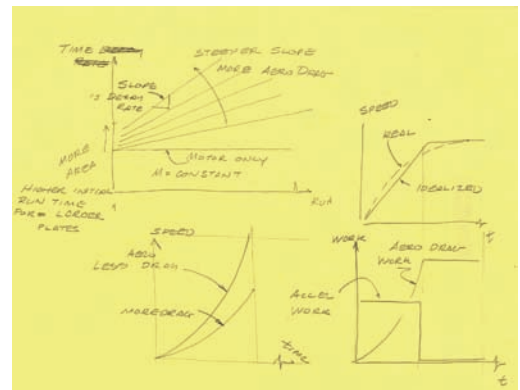 TIME
STEEPER SLOPE
MORE AERO DRAG
SLOPE
IS DECAY
RATE
MORE
AREA
MOTOR ONLY
M = CONSTANT
RUN
HIGHER INITIAL
RUN TIME
FOR LARGER
PLATES
SPEED
REAL
IDEALIZED
t
SPEED
AERO
LESS DRAG
MORE DRAG
TIME
WORK
AERO DRAG
WORK
ACCEL
WORK
t